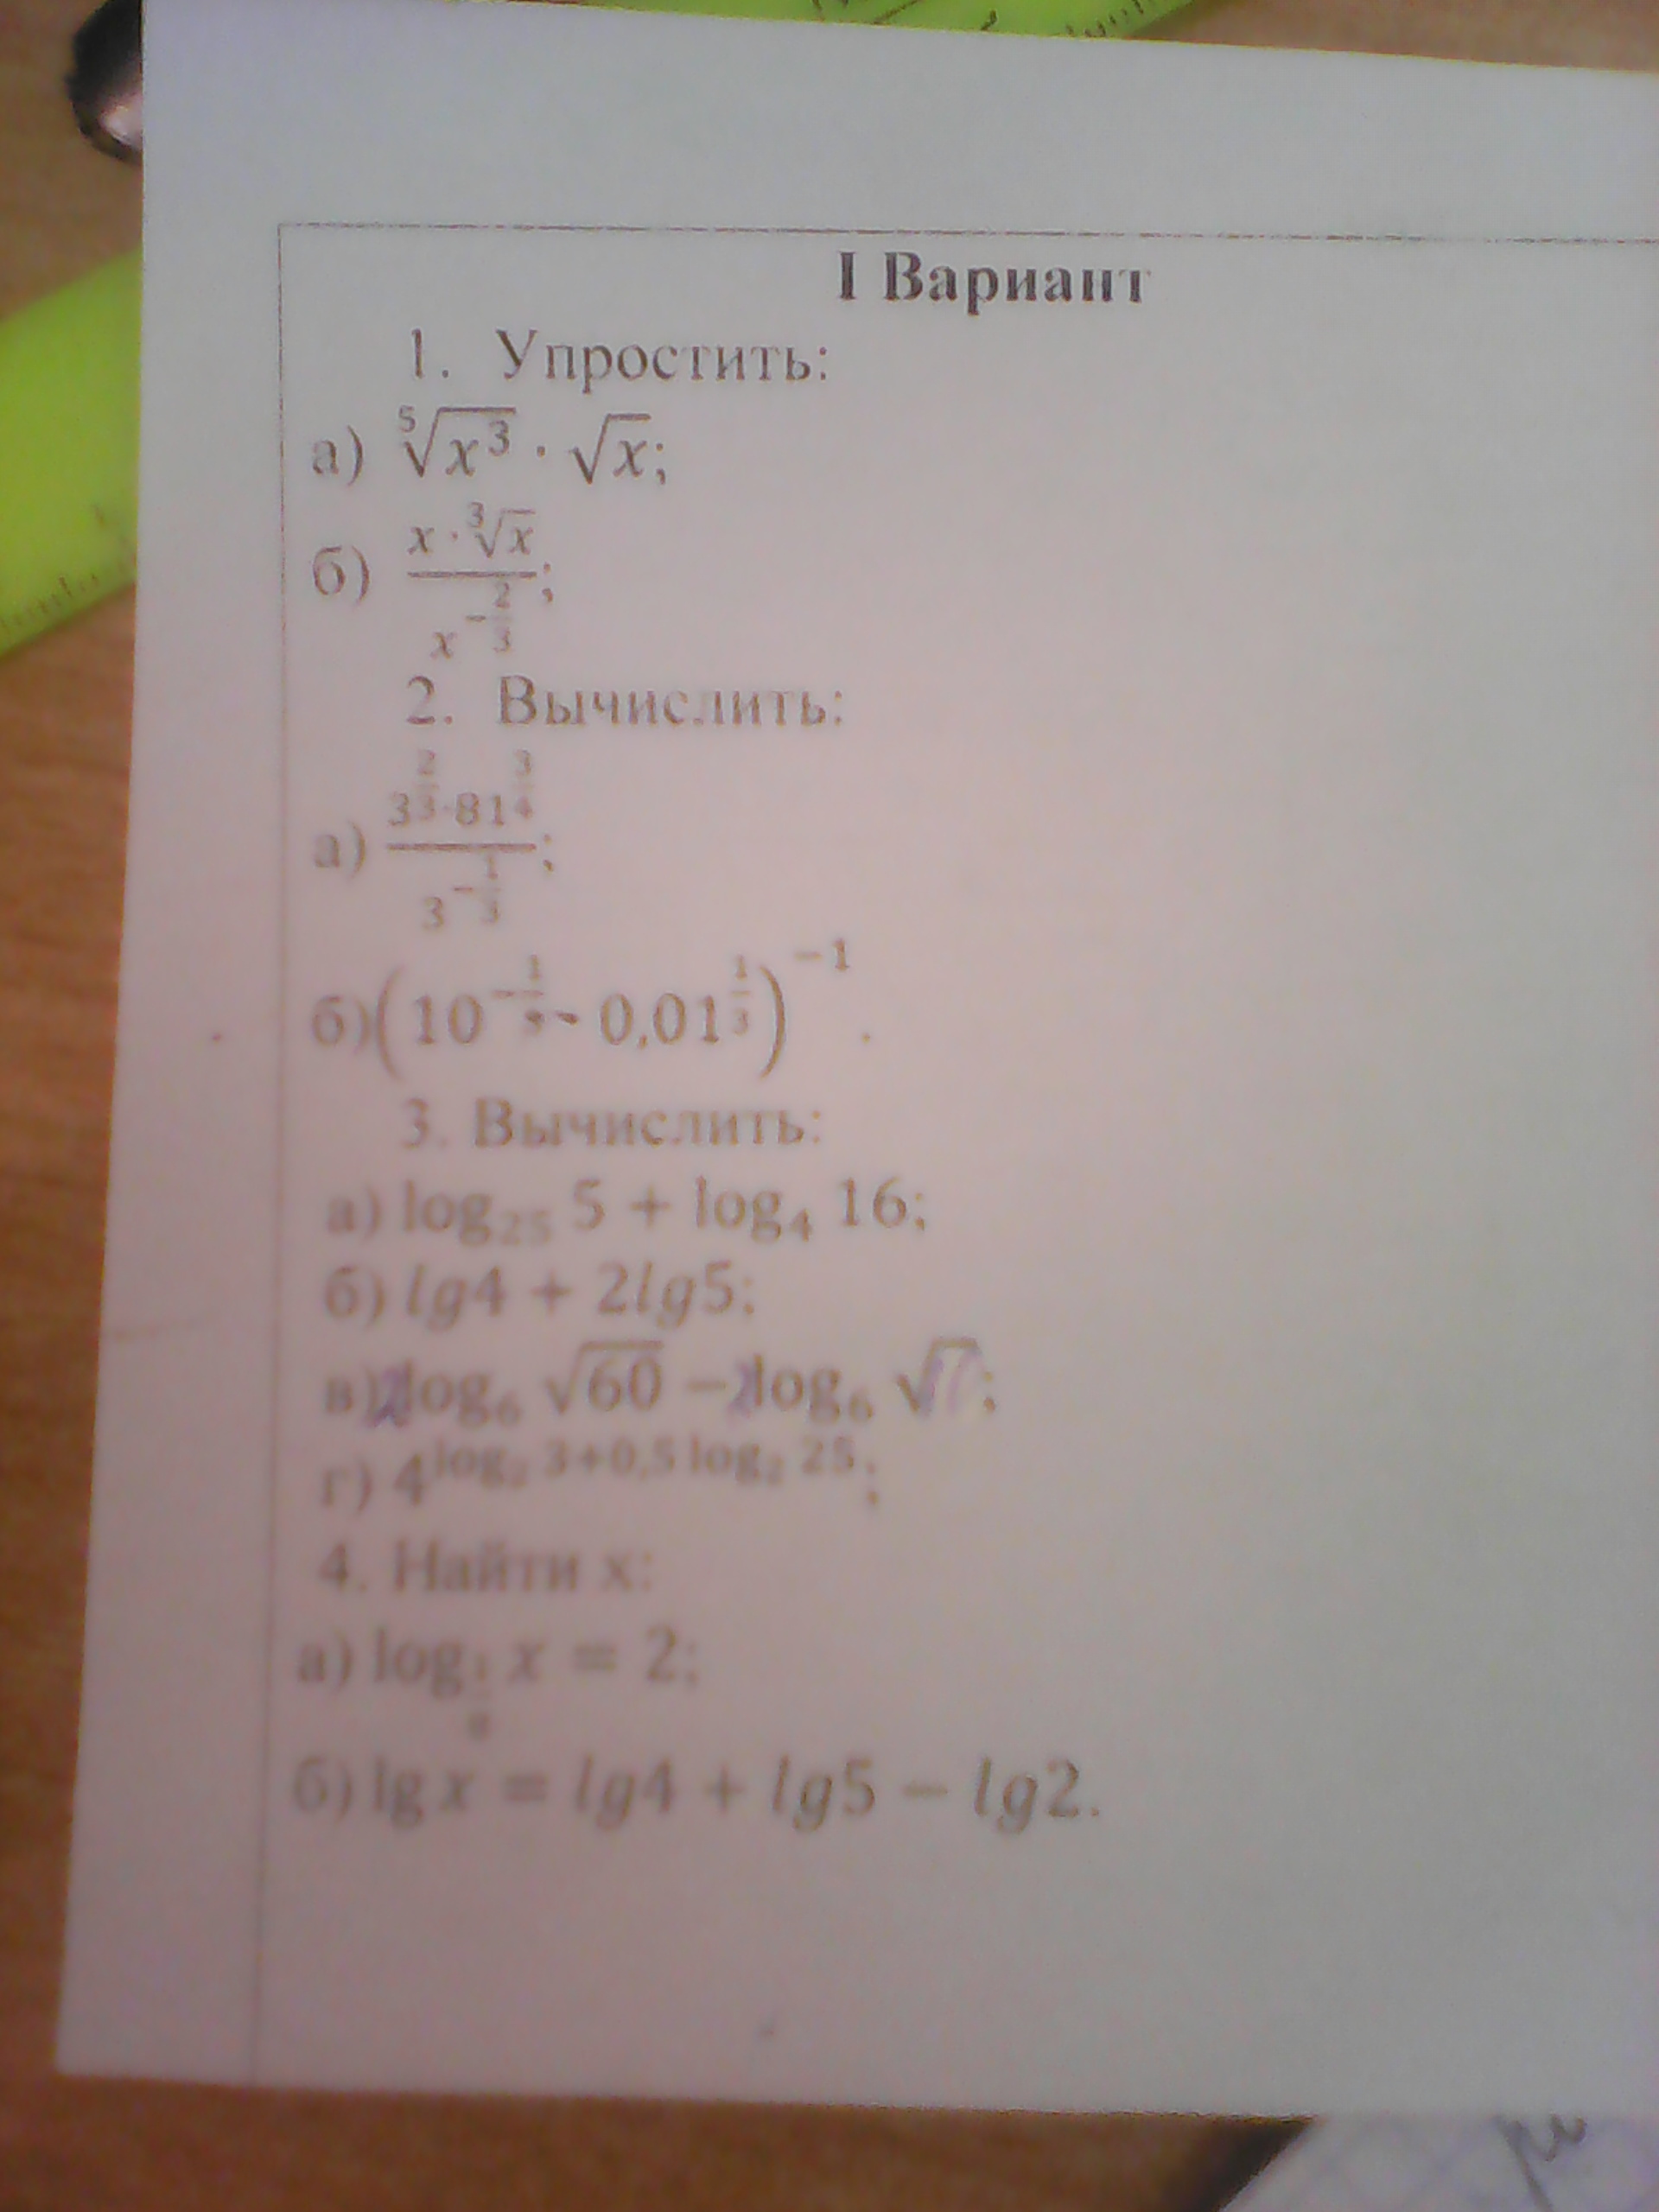 I Вариант
1. Упростить:
а) ⁵√x³ · √x;
б) (x · ³√x) / x^(-2/3);
2. Вычислить:
а) (3^(2/3) · 81^(3/4)) / 3^(-1/3);
б) (10 0,01^(1/3))^(-1).
3. Вычислить:
а) log₂₅ 5 + log₄ 16;
б) lg4 + 2lg5;
в) 2log₆ √60 − 2log₆ √;
г) 4^(log₂ 3+0,5 log₂ 25);
4. Найти х:
а) log x = 2;
б) lg x = lg4 + lg5 − lg2.